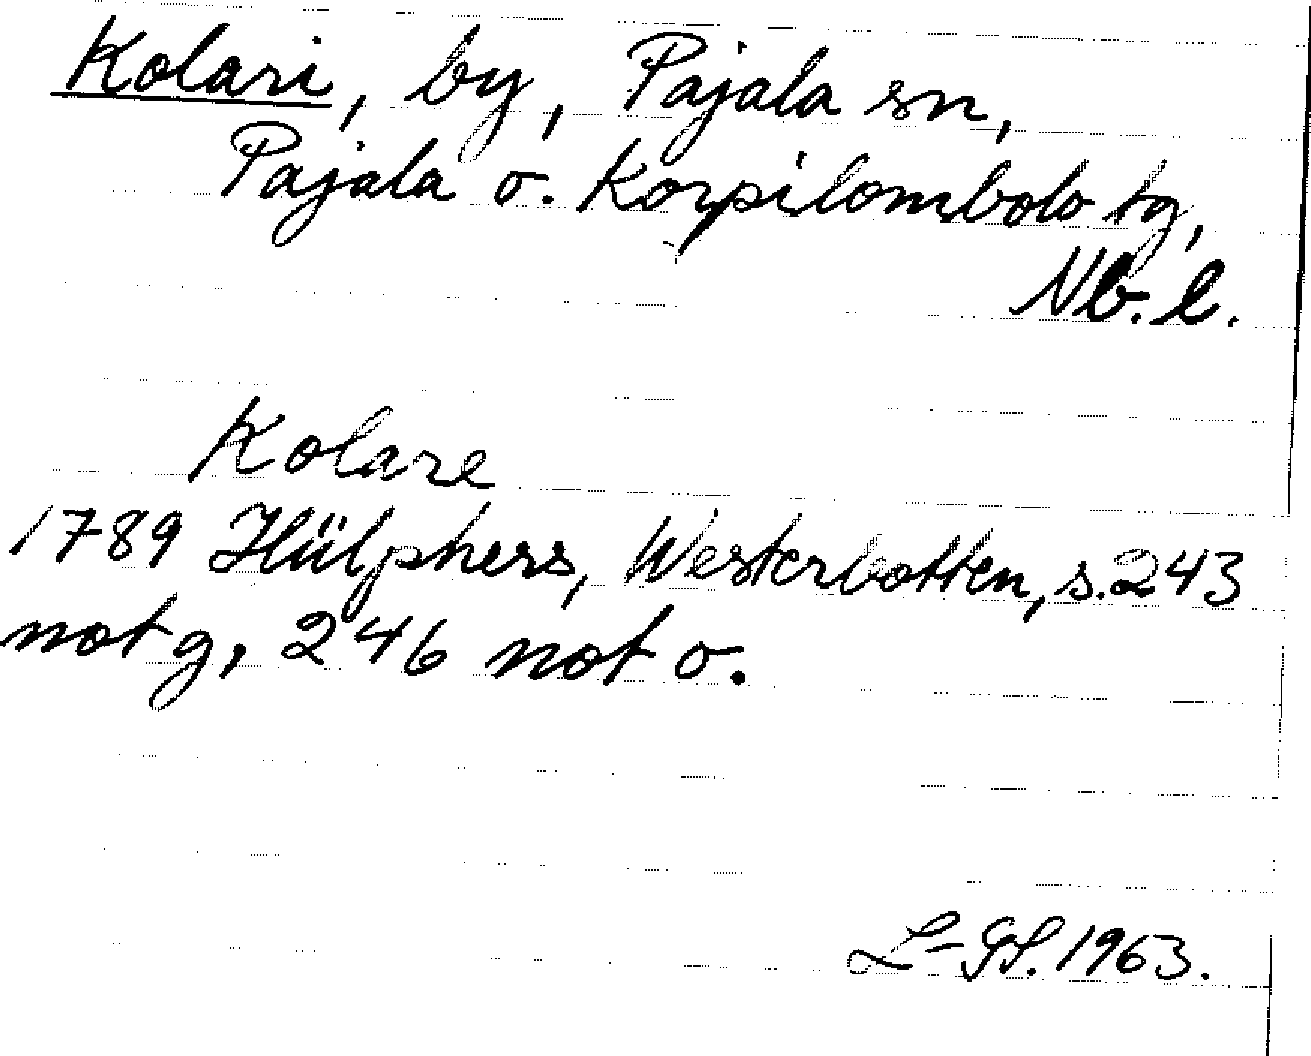 Kolari, by, Pajala sn,
Pajala o. Korpilombolo tg,
Nb. l.
Kolare
1789 Hülphers, Westerbotten, s. 243
not g, 246 not o.
L-GS. 1963.